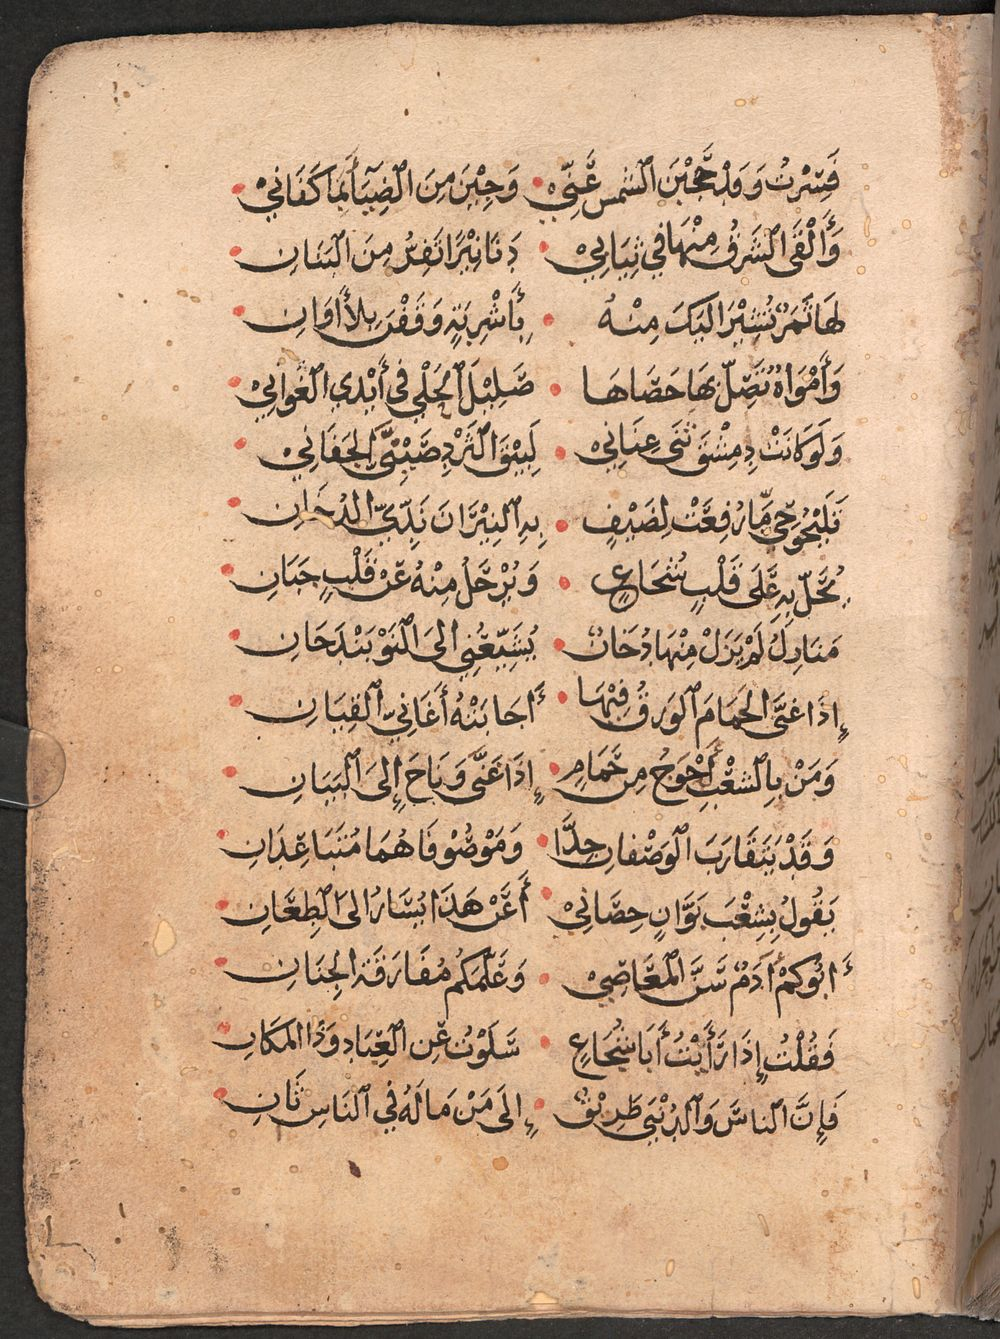 فَسِرْتُ وَقَدْ حَجَبْنَ الشَّمْسَ عَنِّي • وَجِبْنَ مِنَ الضِّيَاءِ بِمَا كَفَانِي
وَأَلْقَى الشَّرْقُ مِنْهَا فِي ثِيَابِي • دَنَانِيْرًا تَفِرُّ مِنَ الْبَنَانِ
لَهَا ثَمَرٌ تُشِيْرُ إِلَيْكَ مِنْهُ • بِأَشْرِبَةٍ وَقَفْنَ بِلَا أَوَانِ
وَأَمْوَاهٌ تَصِلُّ بِهَا حَصَاهَا • صَلِيْلَ الْحَلْيِ فِي أَيْدِي الْغَوَانِي
وَلَوْ كَانَتْ دِمِشْقَ ثَنَى عِنَانِي • لَبِيْقُ الثَّرْدِ صِيْنِيُّ الْجِفَانِ
يَلَنْجُوْجِيُّ مَا رُفِعَتْ لِضَيْفٍ • بِهِ النِّيْرَانُ نَدِّيُّ الدُّخَانِ
يُحَلُّ بِهِ عَلَى قَلْبٍ شُجَاعٍ • وَيُرْحَلُ مِنْهُ عَنْ قَلْبٍ جَبَانِ
مَنَازِلُ لَمْ يَزَلْ مِنْهَا دُخَانٌ • يُشَيِّعُنِي إِلَى النَّوْبَنْدَجَانِ
إِذَا غَنَّى الْحَمَامُ الْوُرْقُ فِيْهَا • أَجَابَتْهُ أَغَانِيُّ الْقِيَانِ
وَمَنْ بِالشِّعْبِ أَحْوَجُ مِنْ حَمَامٍ • إِذَا غَنَّى وَنَاحَ إِلَى الْبَيَانِ
وَقَدْ يَتَقَارَبُ الْوَصْفَانِ جِدًّا • وَمَوْصُوْفَاهُمَا مُتَبَاعِدَانِ
يَقُولُ بِشِعْبِ بَوَّانٍ حِصَانِي • أَعَنْ هَذَا يُسَارُ إِلَى الطِّعَانِ
أَبُوكُمْ آدَمٌ سَنَّ الْمَعَاصِي • وَعَلَّمَكُمْ مُفَارَقَةَ الْجِنَانِ
فَقُلْتُ إِذَا رَأَيْتُ أَبَا شُجَاعٍ • سَلَوْتُ عَنِ الْعِبَادِ وَذَا الْمَكَانِ
فَإِنَّ النَّاسَ وَالدُّنْيَى طَرِيْقٌ • إِلَى مَنْ مَا لَهُ فِي النَّاسِ ثَانِ